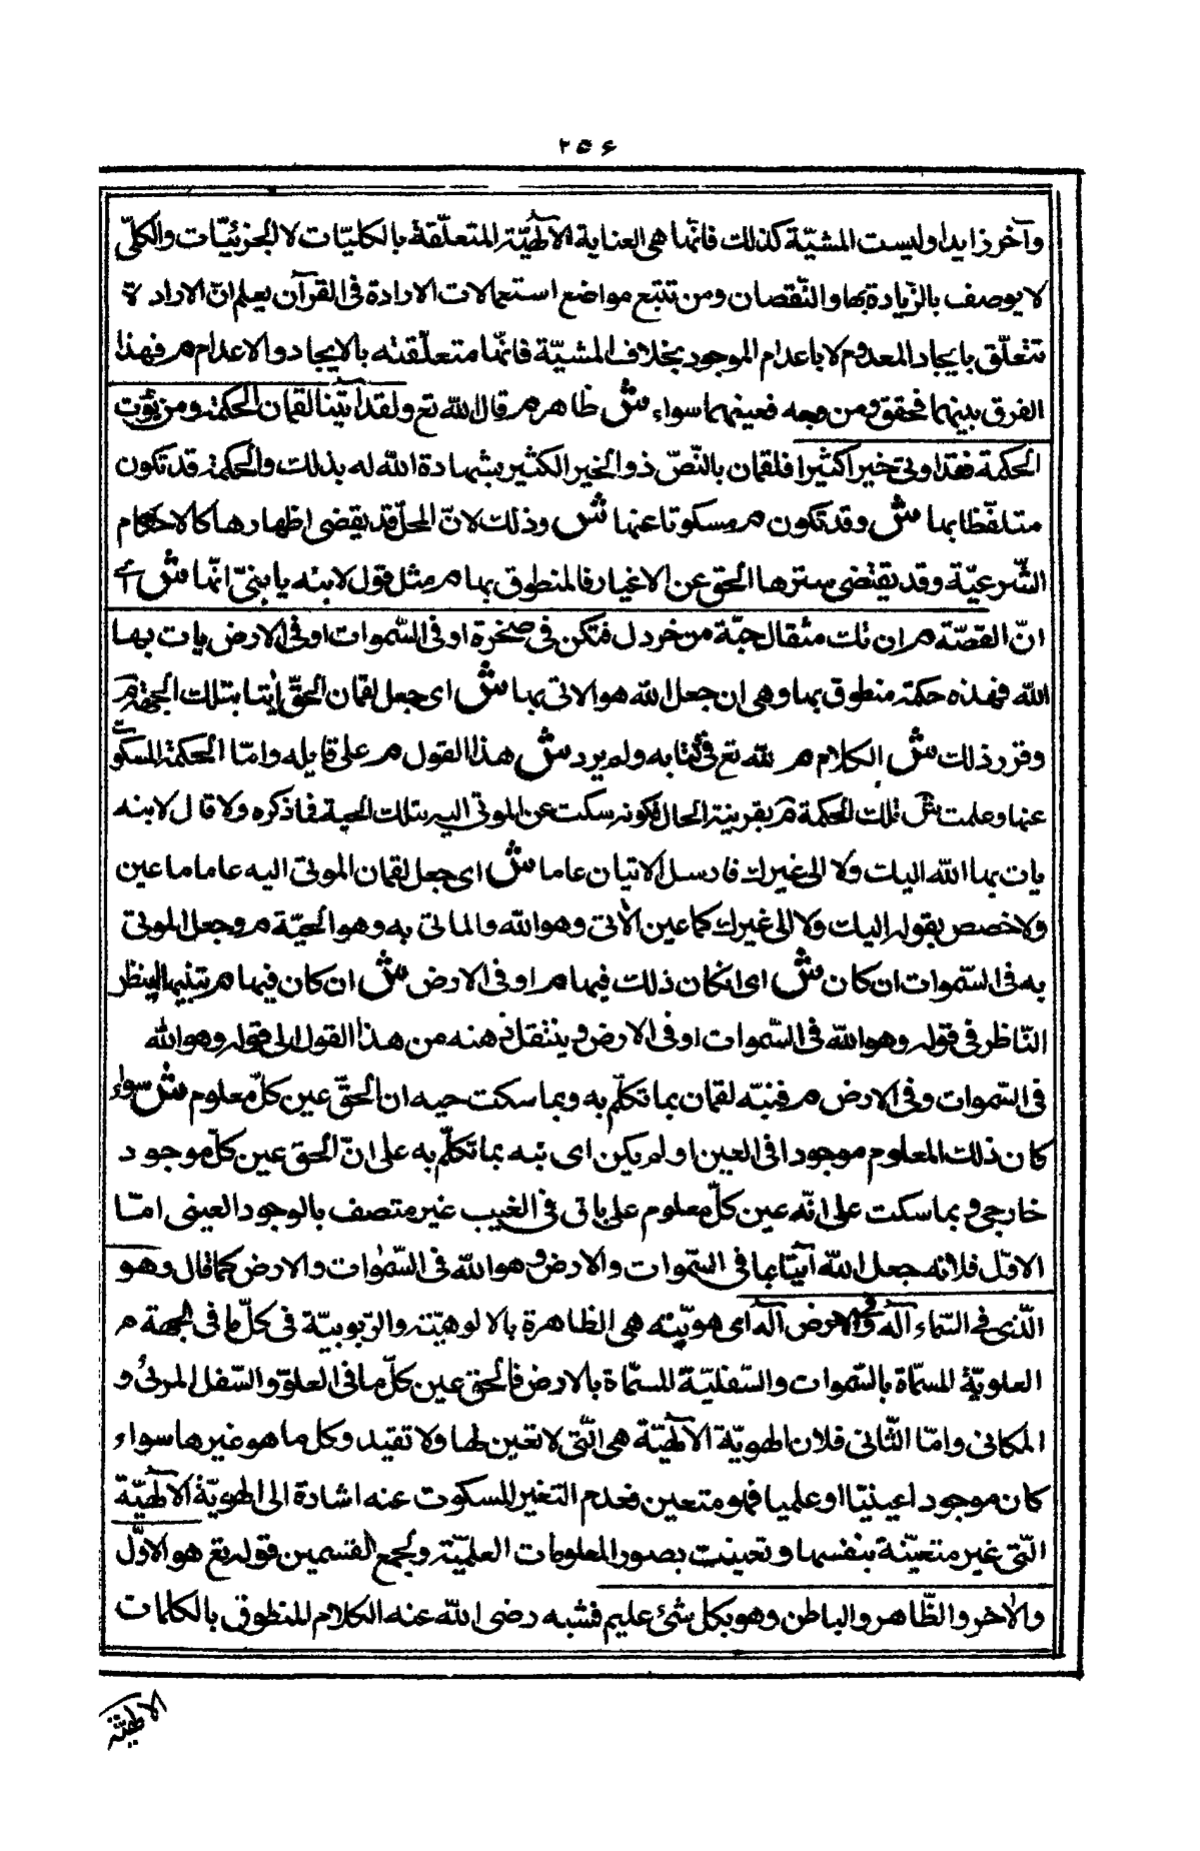 ۲۵۶
وآخر زايدا وليست المشيّة كذلك فانّها هى العناية الآلهيّة المتعلّقة بالكليّات لا الجزئيّات والكلّى
لا يوصف بالزّيادة بها والنّقصان ومن تتبع مواضع استعمالات الارادة فى القرآن يعلم انّ الارادة
تتعلّق بايجاد المعدوم لا باعدام الموجود بخلاف المشيّة فانّها متعلّقته بالايجاد والاعدام م فهذا
الفرق بينهما فحقق ومن وجه فعينهما سواء ش ظاهر م قال الله تع ولقد آتينا لقمان الحكمة ومن يؤت
الحكمة فقد اوتى خيرا كثيرا فلقمان بالنّصّ ذو الخير الكثير بشهادة الله له بذلك والحكمة قد تكون
متلفّظا بها ش وقد تكون م مسكوتا عنها ش وذلك لانّ المحلّ قد يقضى اظهارها كالاحكام
الشّرعيّة وقد يقتضى سترها الحق عن الاغيار فالمنطوق بها م مثل قول لابنه يا بنىّ انّها ش اى
انّ القصّة م ان تك مثقال حبّة من خردل فتكن فى صخرة او فى السّموات او فى الارض يات بها
الله فهذه حكمة منطوق بها وهى ان جعل الله هو الاتى بها ش اى جعل لقمان الحقّ آيتا بتلك الحبّة م
وقرر ذلك ش الكلام م لله تع فى كتابه ولم يرد ش هذا القول م على قايله وامّا الحكمة المسكوت
عنها وعلمت ش تلك الحكمة م بقرينة الحال فكونه سكت عن الموتى اليه بتلك الحبة فما ذكره ولا قال لابنه
يات بها الله اليك ولا الى غيرك فارسل الاتيان عاما ش اى جعل لقمان الموتى اليه عاما ما عين
ولا خصص بقوله اليك ولا الى غيرك كما عين الآتى وهو الله والماتى به وهو الحبّة م وجعل الموتى
به فى السّموات ان كان ش اى ان كان ذلك فيها م او فى الارض ش ان كان فيها م تنبيها لينظر
النّاظر فى قوله وهو الله فى السّموات او فى الارض وينتقل ذهنه من هذا القول الى قوله وهو الله
فى السّموات وفى الارض م فنبّه لقمان بما تكلّم به وبما سكت عنه ان الحقّ عين كلّ معلوم ش سواء
كان ذلك المعلوم موجودا فى العين او لم يكن اى نبه بما تكلّم به على انّ الحق عين كلّ موجود
خارجى وبما سكت على انّه عين كلّ معلوم على باق فى الغيب غير متصف بالوجود العينى امّا
الاوّل فلانّه جعل الله آيتا بما فى السّموات والارض وهو الله فى السّموات والارض كما قال وهو
الّذى فى السّماء آله وفى الارض آله اى هويّته هى الظاهرة بالالوهيّته والرّبوبيّة فى كلّ ما فى الجهة م
العلويّة المسمّاة بالسّموات والسّفليّة المسمّاة بالارض فالحق عين كلّ ما فى العلوّ والسّفل المرتبىّ و
المكانى وامّا الثّانى فلان الهويّة الآلهيّة هى الّتى لا تعين لها ولا تقيد وكل ما هو غيرها سواء
كان موجودا عينيّا او علميا فهو متعين فعدم التغير للسكوت عنه اشارة الى الهويّة الآلهيّة
الّتى غير متعيّنة بنفسها وتعينت بصور المعلومات العلميّة ولجمع القسمين قوله تع هو الاوّل
والآخر والظّاهر والباطن وهو بكل شئ عليم فشبه رضى الله عنه الكلام المنطوق بالكلمات
الالهيّة